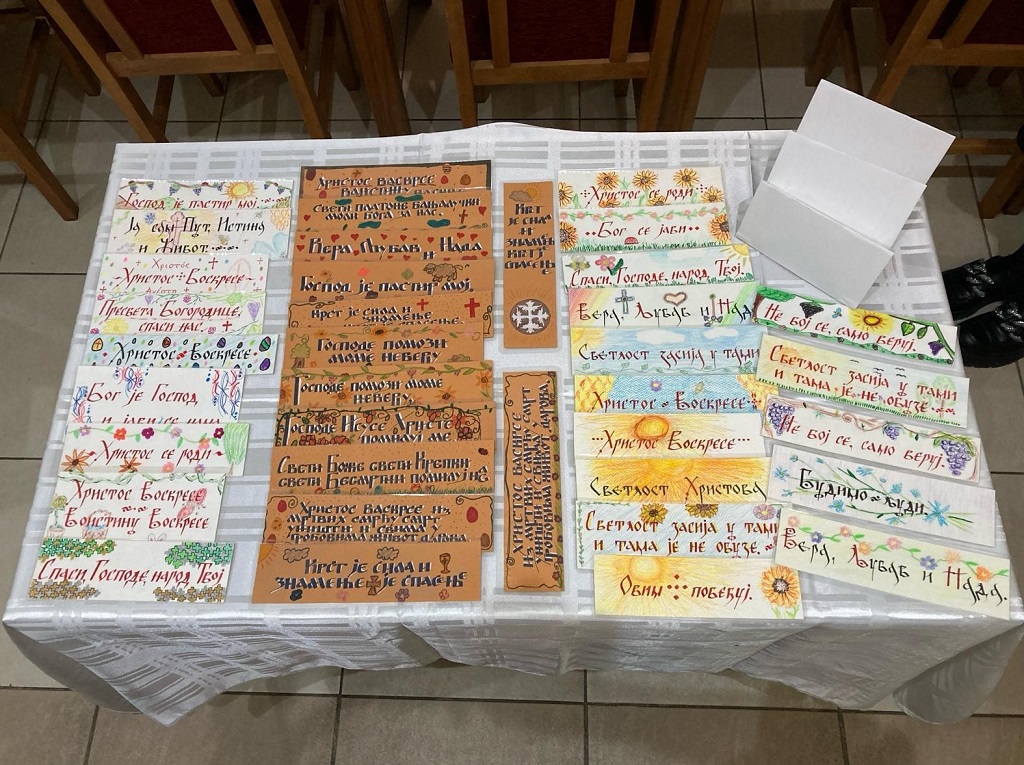 Господ је пастир мој.
Ја сам Пут, Истина
и Живот.
Христос
Христос Воскресе
Пресвета Богородице,
спаси нас.
Христос Воскресе
Бог је Господ
и јави се нам
Христос се роди
Христос Воскресе
Воистину Воскресе
Спаси, Господе, народ Твој
Христос васкрсе
ваистину васкрсе
Свети Платоне Бањалучки
моли Бога за нас.
Вера Љубав и Нада
Господ је пастир мој,
Крст је сила и
знамење
спасење.
Господе помози
моме неверју
Господе помози моме
неверју.
Господе Исусе Христе
помилуј ме
Свети Боже свети Крепки
свети Бесмртни помилуј нас
Христос васкрсе из
мртвих смрћу смрт
уништи и свима у
гробовима живот дарова
Крст је сила и
знамење је спасење
Крст
је сила
и
знамење
Крст је
спасење
Христос васкрсе
из мртвих смрћу смрт
уништи и свима у
гробовима живот дарова.
Христос се роди
Бог се јави
Спаси, Господе, народ Твој.
Вера, Љубав и Нада
Светлост засија у тами
Христос Воскресе
Христос Воскресе
Светлост Христова
Светлост засија у тами
и тама је не обузе.
Обиљ побеђуј.
Не бој се, само веруј.
Светлост засија у тами
и тама је не обузе.
Не бој се, само веруј.
Будимо људи
Вера, Љубав и Нада.